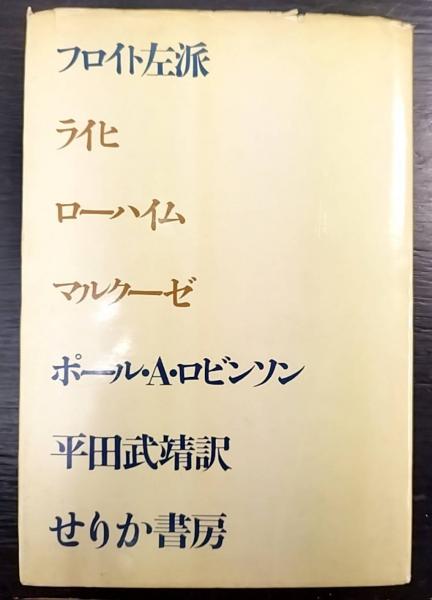 フロイト左派
ライヒ
ローハイム
マルクーゼ
ポール・A・ロビンソン
平田武靖訳
せりか書房